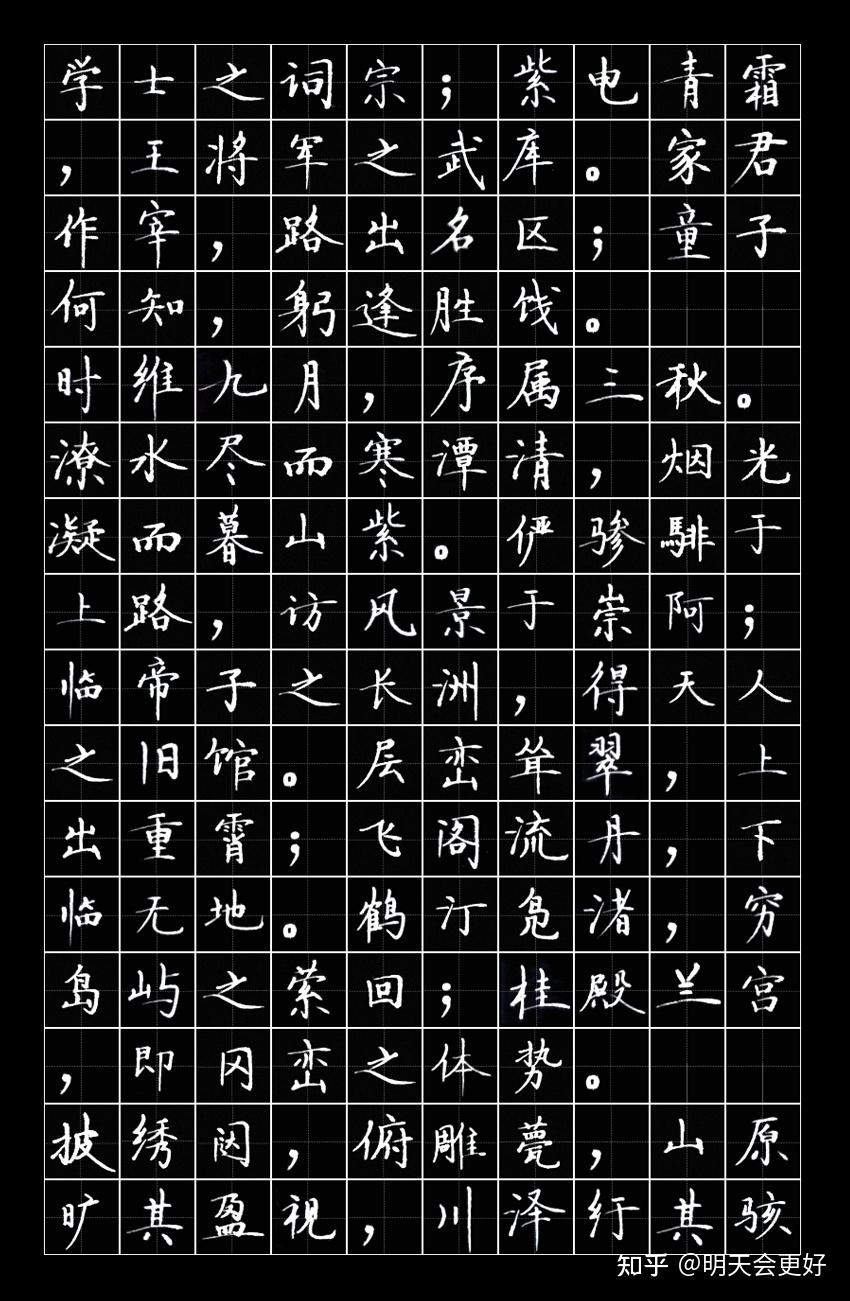 学士之词宗；紫电青霜
，王将军之武库。家君
作宰，路出名区；童子
何知，躬逢胜饯。
时维九月，序属三秋。
潦水尽而寒潭清，烟光
凝而暮山紫。俨骖騑于
上路，访风景于崇阿；
临帝子之长洲，得天人
之旧馆。层峦耸翠，上
出重霄；飞阁流丹，下
临无地。鹤汀凫渚，穷
岛屿之萦回；桂殿兰宫
，即冈峦之体势。
披绣闼，俯雕甍，山原
旷其盈视，川泽纡其骇
知乎 @明天会更好